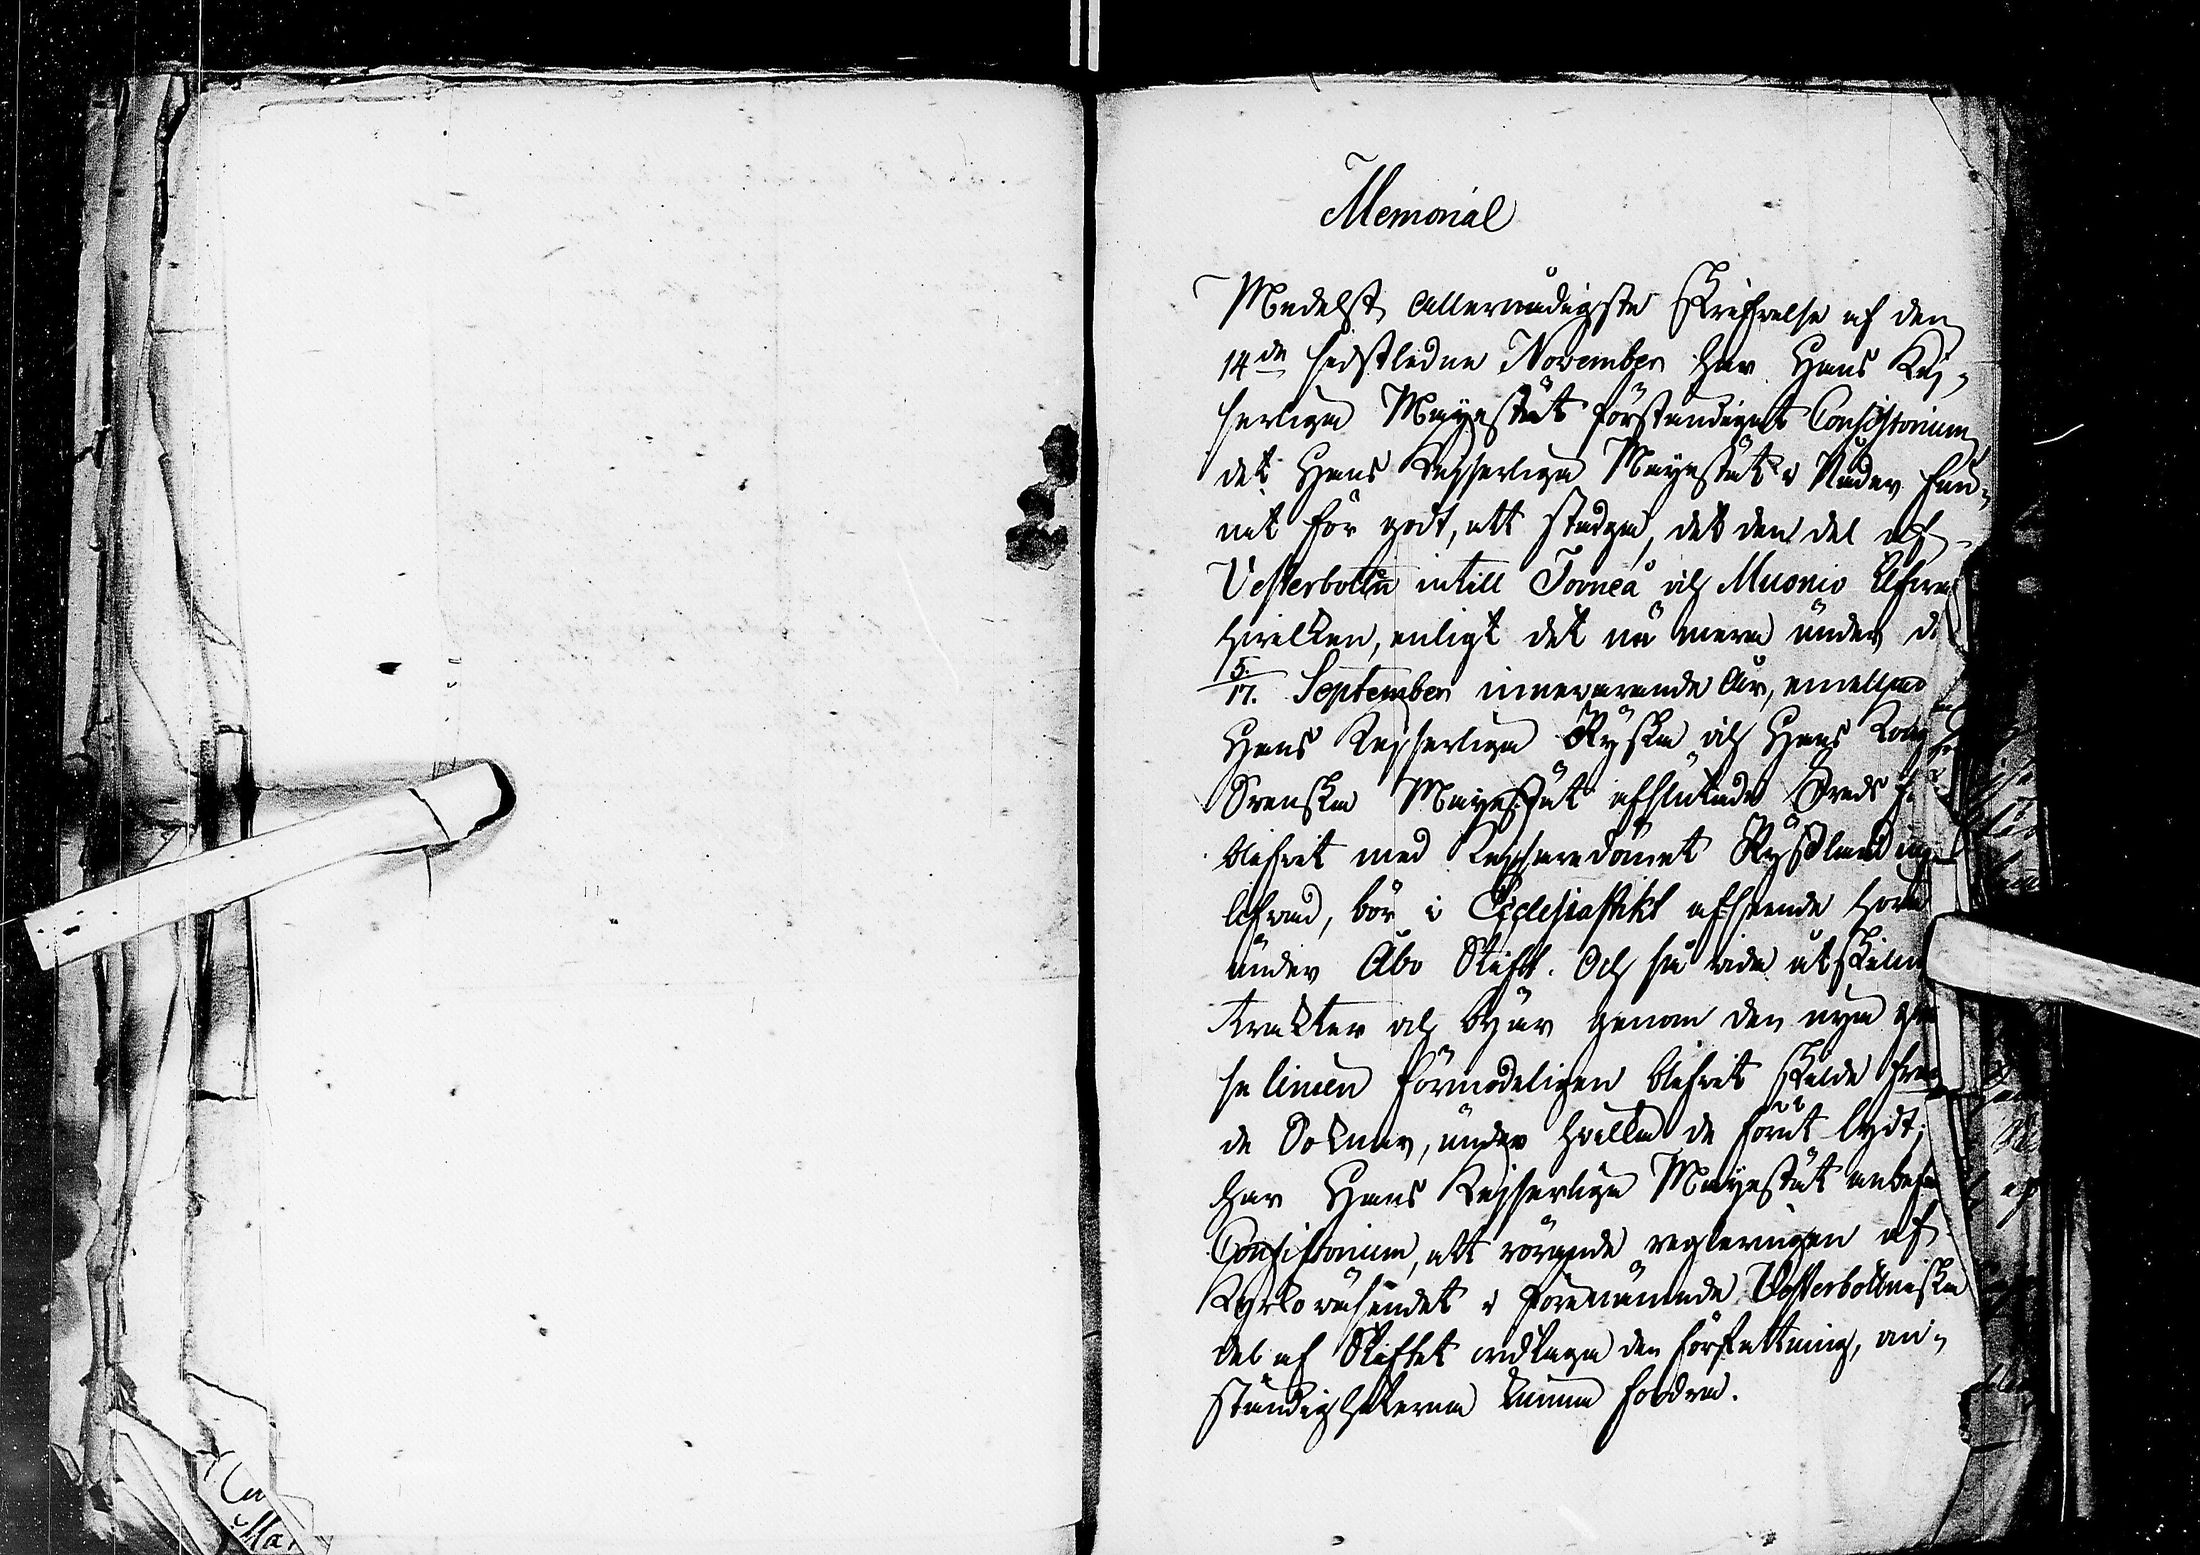 Memorial
Medelst allernådigste Skrifvelse af den
14de sidstledne November har Hans Kej-
serliga Mayestät förständigat Consistorium
det Hans Kejserliga Mayestät i Nåder fun-
nit för godt, att stadga, det den del af
Vesterbottn intill Torneå och Muonio Elfwar
hvilken, enligt det nu mera under d.
5/17. September innevarande År, emellan
Hans Kejserliga Ryska och Hans Kong
Svenska Mayestät afslutade Freds
blifvit med Kejsaredömet Ryssland
lifvad, bör i Ecclesiastikt afseende höra
under Åbo Stift. Och så vida åtskilliga
trakter och byar genom den nya grän
se linien förmodeligen blifvit skilde från
de Soknar, under hvilka de förut lydt;
har Hans Kejserliga Mayestät anbefalt
Consistorium, att rörande regleringen af
Kyrkoväsendet i förenämnde Vesterbottniska
del af Stiftet vidtaga den författning, om-
ständigheterna kunna fordra.